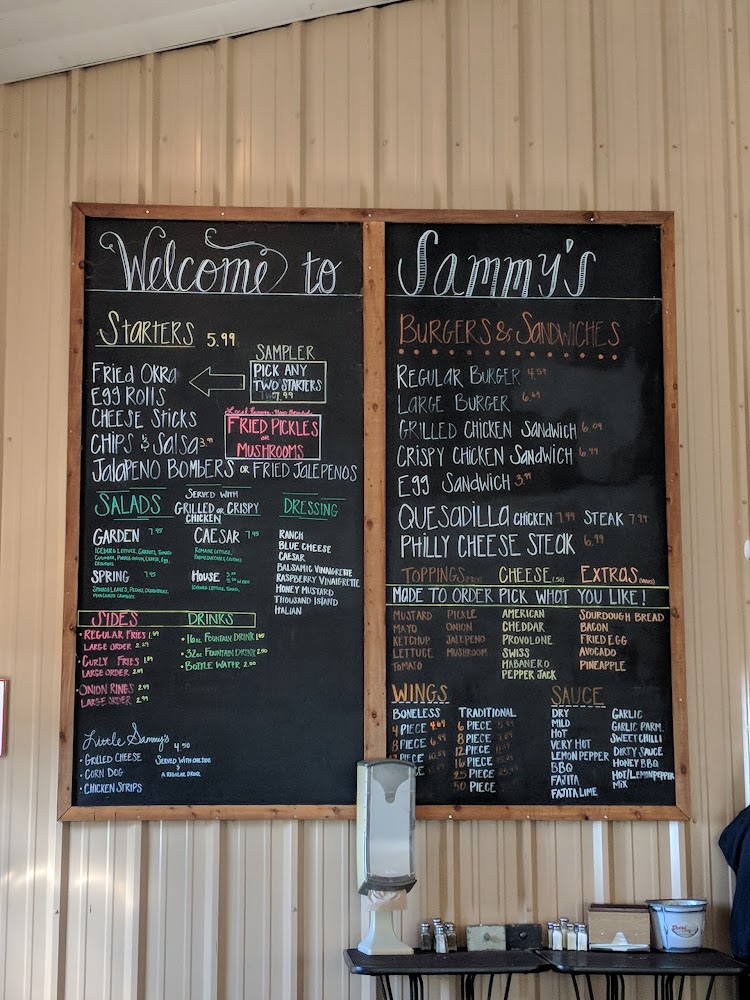 Welcome to
Starters 5.99
Fried Okra
Egg Rolls
Cheese Sticks
Chips & Salsa 3.99
Jalapeno Bombers or Fried Jalepenos
Sampler
Pick Any
Two Starters
7.99
Fried Pickles
or
Mushrooms
Salads
Served with
Grilled or Crispy
Chicken
Dressing
Garden 7.45
Iceberg Lettuce, Carrots, Tomato
Caesar 7.45
Romaine Lettuce,
Spring 7.45
House
Iceberg Lettuce, Tomato,
Ranch
Blue Cheese
Caesar
Balsamic Vinaigrette
Raspberry Vinaigrette
Honey Mustard
Thousand Island
Italian
Sides
• Regular Fries 1.69
Large Order
• Curly Fries
Large Order
• Onion Rings 2.49
Large Order 2.99
Drinks
• 16oz Fountain Drink
• 32oz Fountain Drink
• Bottle Water 2.00
Little Sammy's 4.50
• Grilled Cheese
• Corn Dog
• Chicken Strips
Served with
&
a Regular Drink
Sammy's
Burgers & Sandwiches
Regular Burger 4.59
Large Burger 6.69
Grilled Chicken Sandwich 6.09
Crispy Chicken Sandwich
Egg Sandwich 3.99
Quesadilla Chicken 7.99 Steak 7.99
Philly Cheese Steak 6.99
Toppings Cheese (.50) Extras
Made to Order Pick What You Like!
Mustard
Mayo
Ketchup
Lettuce
Tomato
Pickle
Onion
Jalepeno
Mushroom
American
Cheddar
Provolone
Swiss
Habanero
Pepper Jack
Sourdough Bread
Bacon
Fried Egg
Avocado
Pineapple
Wings
Boneless
4 Piece
8 Piece
Piece
Traditional
6 Piece
8 Piece
12 Piece
16 Piece
25 Piece
50 Piece
Sauce
Dry
Mild
Hot
Very Hot
Lemon Pepper
BBQ
Fajita
Fajita Lime
Garlic
Garlic Parm.
Sweet Chilli
Dirty Sauce
Honey BBQ
Hot/Lemon Pepper
Mix